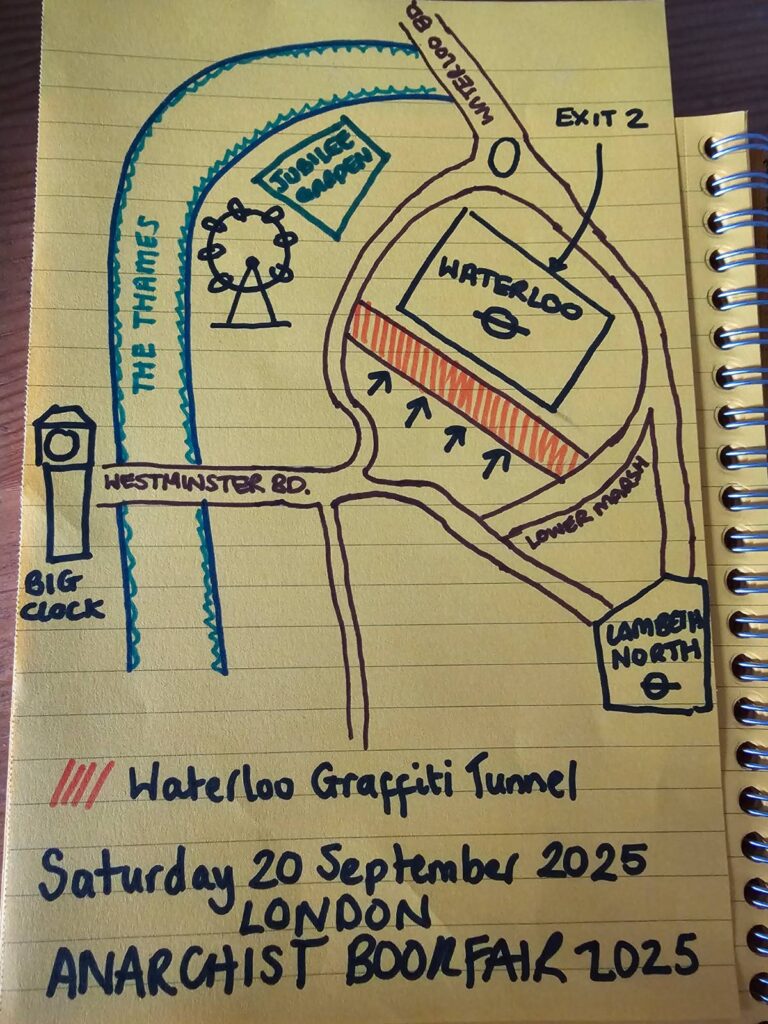 WATERLOO RD
EXIT 2
JUBILEE
GARDEN
WATERLOO
THE THAMES
WESTMINSTER RD.
LOWER MARSH
BIG
CLOCK
LAMBETH
NORTH
Waterloo Graffiti Tunnel
Saturday 20 September 2025
LONDON
ANARCHIST BOOKFAIR 2025